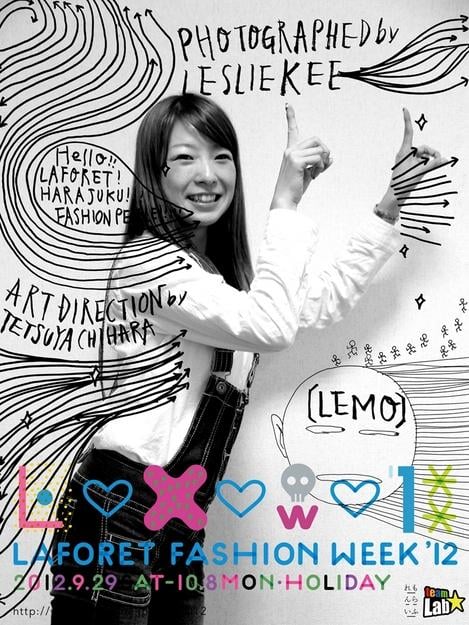 PHOTOGRAPHED by
LESLIE KEE
Hello!!
LAFORET!
HARAJUKU!
FASHION
ART DIRECTION by
TETSUYA CHIHARA
[LEMO]
LAFORET FASHION WEEK '12
2012.9.29 AT-10.8MON・HOLIDAY
teamLab